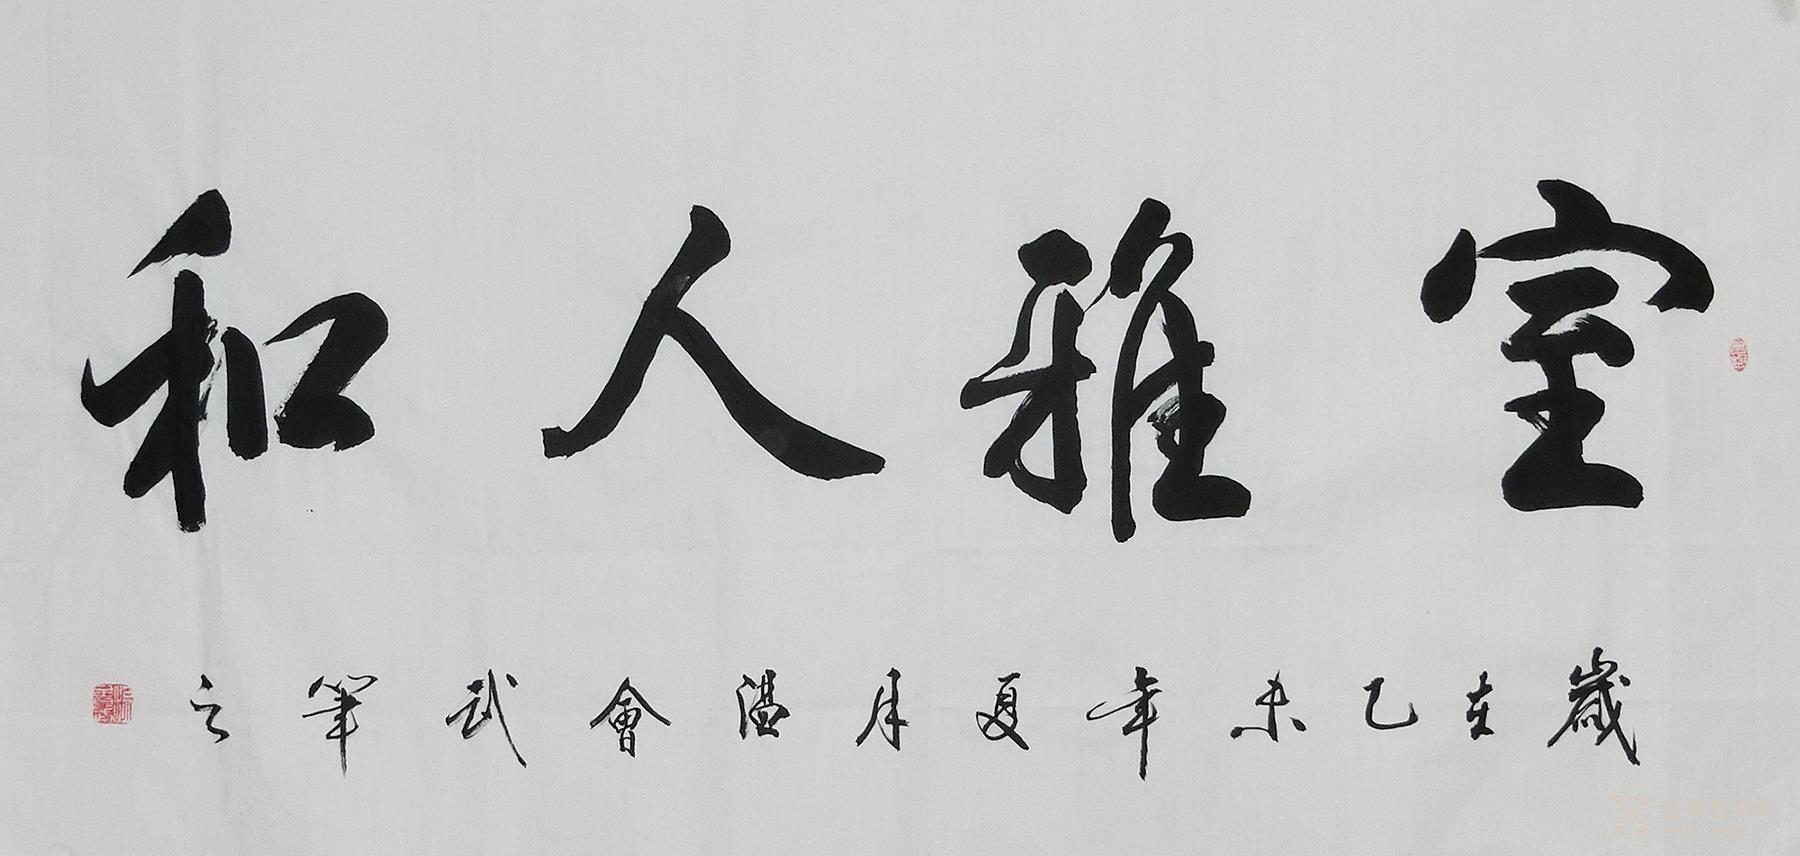 室雅人和
歲在乙未年夏月溫會武筆之